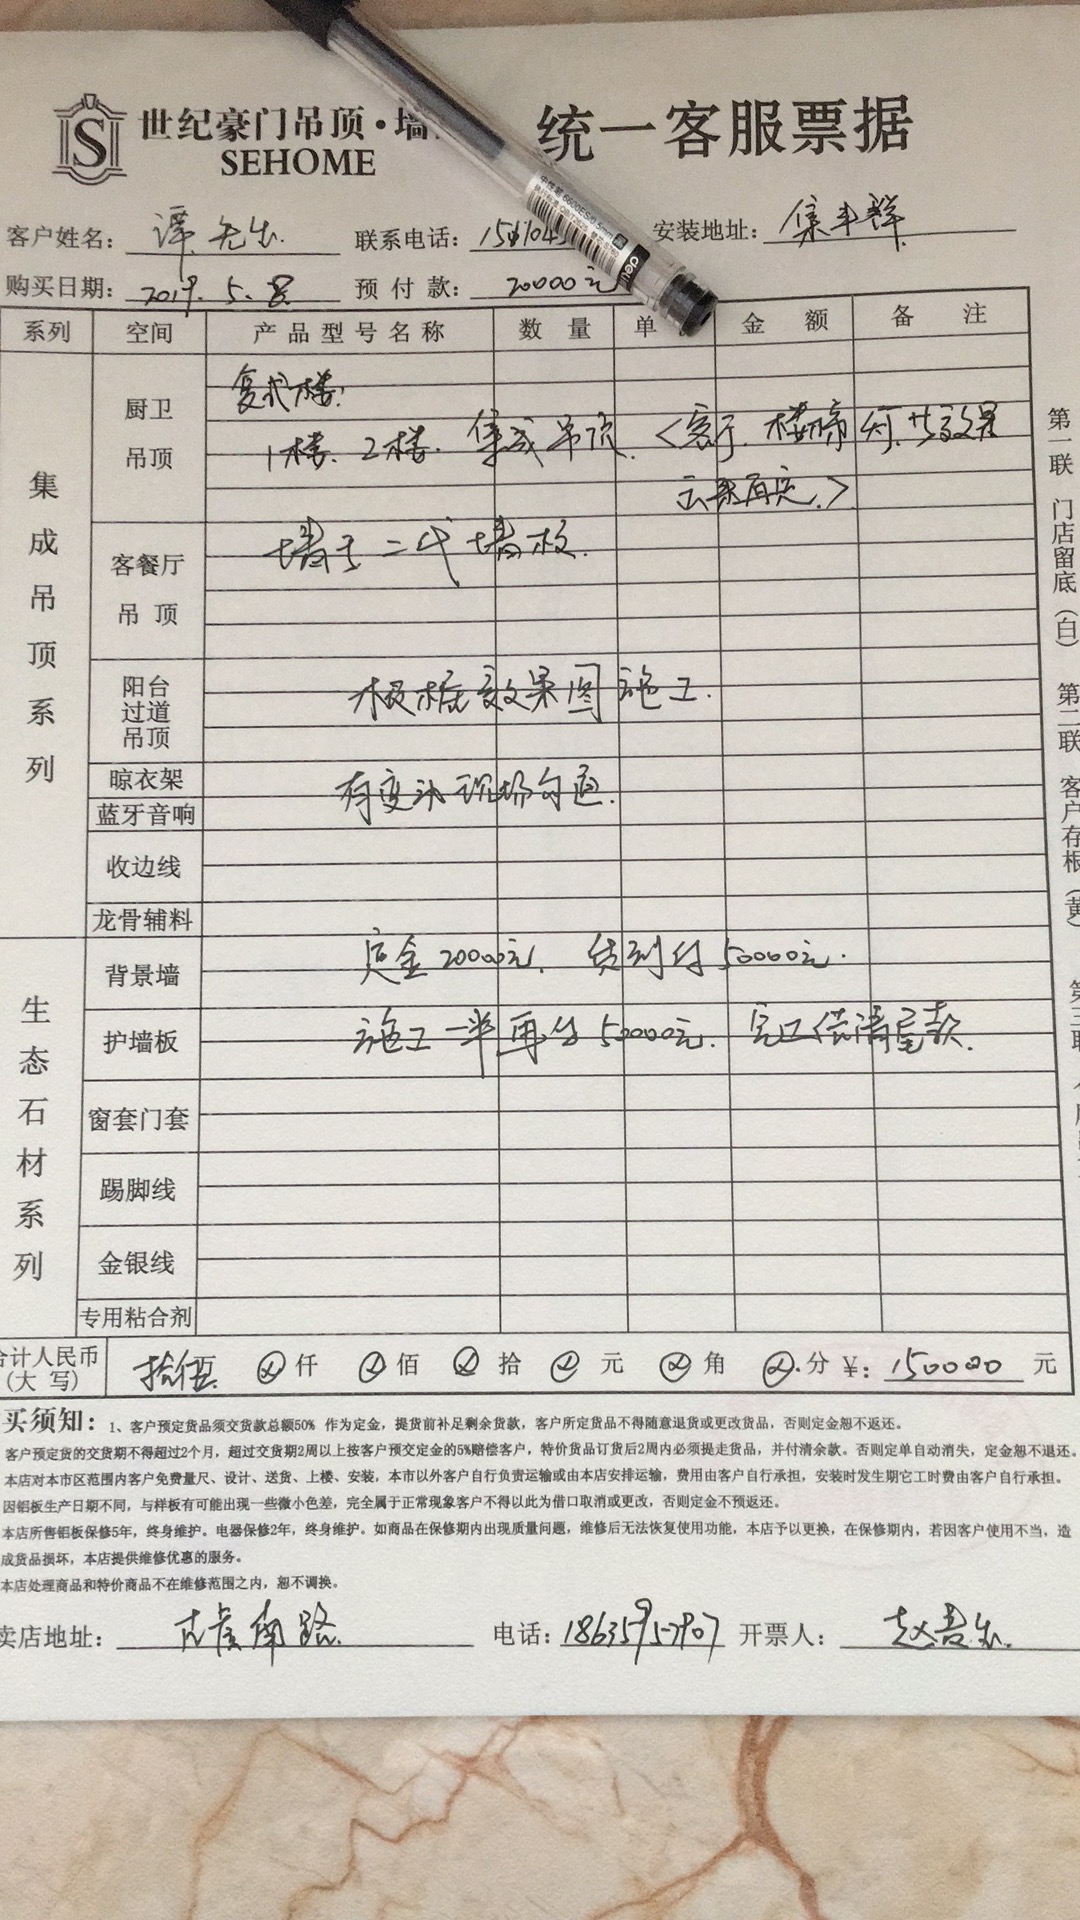 世纪豪门吊顶·墙
SEHOME
统一客服票据
客户姓名: 谭先生 联系电话: 安装地址: 集丰群
购买日期: 2019.5.8 预付款: 20000元
系列 空间 产品型号名称 数量 单 金额 备注
集成吊顶系列
厨卫吊顶
复式楼:
1楼、2楼.集成吊顶.<客厅.楼梯
再定.>
客餐厅吊顶
二代墙板.
阳台过道吊顶
根据效果图施工.
晾衣架
有变动现场勾通.
蓝牙音响
收边线
龙骨辅料
生态石材系列
背景墙
定金20000元. 货到付50000元.
护墙板
施工一半再付50000元. 完工付清尾款.
窗套门套
踢脚线
金银线
专用粘合剂
合计人民币(大写) 拾伍 仟 佰 拾 元 角 分 ¥: 150000 元
买须知: 1、客户预定货品须交货款总额50% 作为定金，提货前补足剩余货款，客户所定货品不得随意退货或更改货品，否则定金恕不返还。
客户预定货的交货期不得超过2个月，超过交货期2周以上按客户预交定金的5%赔偿客户，特价货品订货后2周内必须提走货品，并付清余款。否则定单自动消失，定金恕不退还。
本店对本市区范围内客户免费量尺、设计、送货、上楼、安装，本市以外客户自行负责运输或由本店安排运输，费用由客户自行承担，安装时发生期它工时费由客户自行承担。
因铝板生产日期不同，与样板有可能出现一些微小色差，完全属于正常现象客户不得以此为借口取消或更改，否则定金不预返还。
本店所售铝板保修5年，终身维护。电器保修2年，终身维护。如商品在保修期内出现质量问题，维修后无法恢复使用功能，本店予以更换，在保修期内，若因客户使用不当，造
成货品损坏，本店提供维修优惠的服务。
本店处理商品和特价商品不在维修范围之内，恕不调换。
卖店地址: 南路 电话: 18635957907 开票人: 赵
第一联 门店留底(白) 第二联 客户存根(黄)
deli